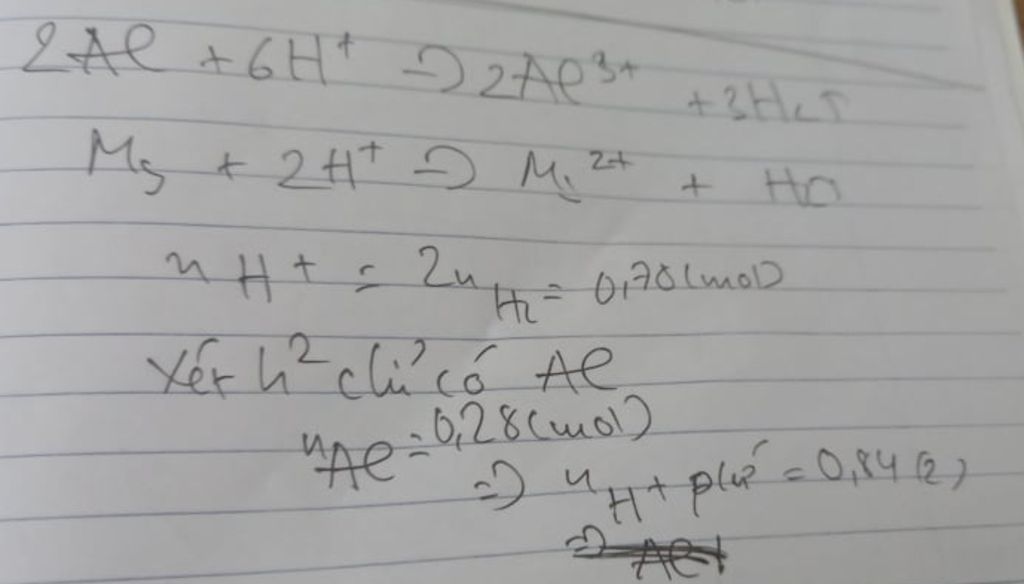 2Al + 6H⁺ → 2Al³⁺ + 3H₂↑
Mg + 2H⁺ → Mg²⁺ + H₂
nH⁺ = 2nH₂ = 0,78 (mol)
Xét h² chỉ có Al
nAl = 0,28 (mol)
⇒ nH⁺ pứ = 0,84 (2)
⇒ Al